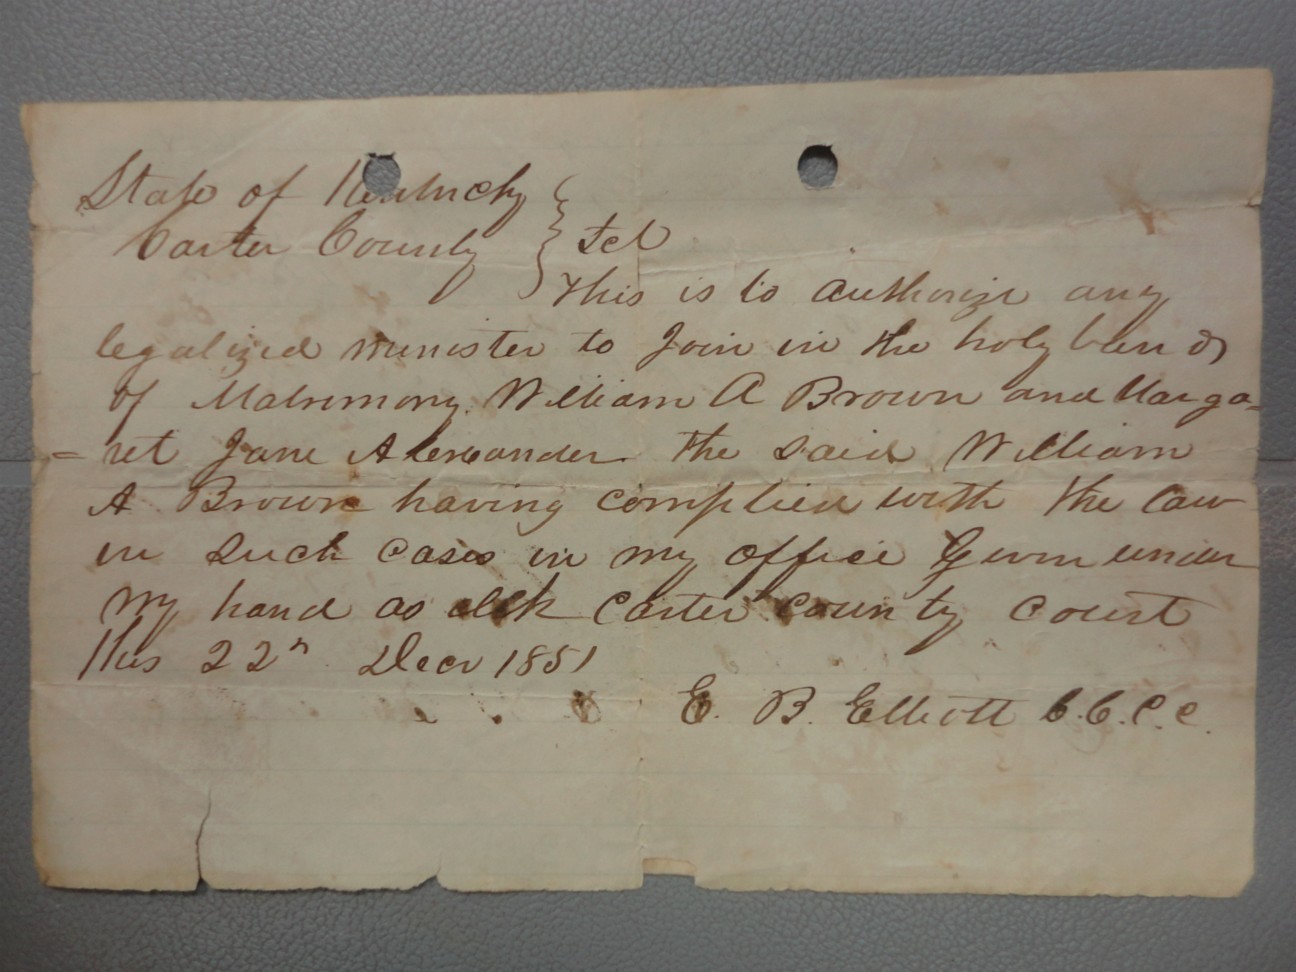 State of Kentucky }
Carter County } Sct
This is to authorize any
legalized minister to Join in the holy bands
of Matrimony William A Brown and Marga-
=ret Jane Alexander The said William
A Brown having complied with the law
in such cases in my office Given under
my hand as clk Carter county court
this 22n Decr 1851
E. B. Elliott C.C.C.C.